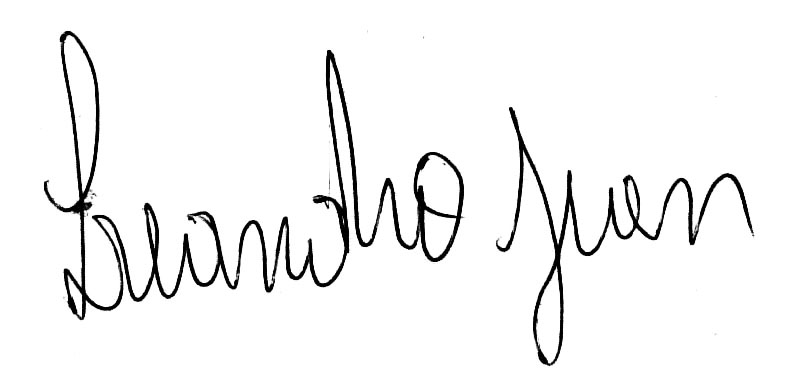 Leandro Juan